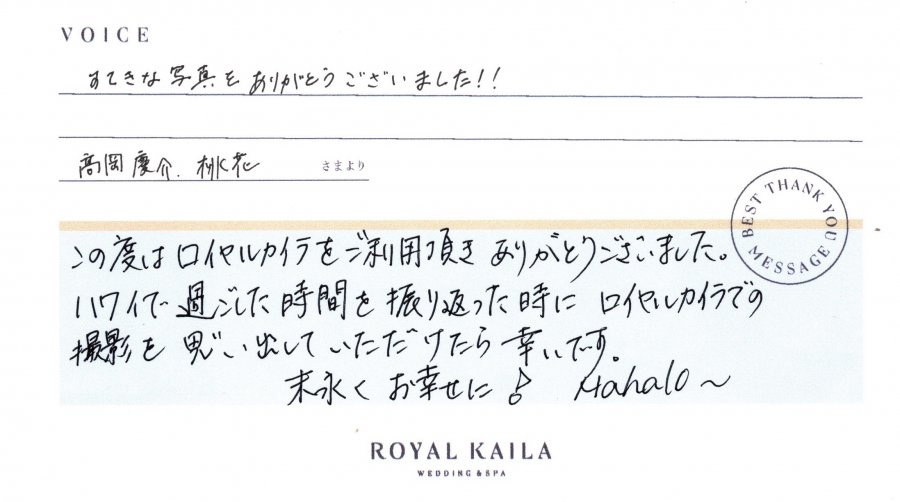 VOICE
すてきな写真をありがとうございました!!
高岡慶介、桃花 さまより
BEST THANK YOU MESSAGE
この度はロイヤルカイラをご利用頂きありがとうございました。
ハワイで過ごした時間を振り返った時にロイヤルカイラでの
撮影を思い出していただけたら幸いです。
末永くお幸せに♪ Mahalo～
ROYAL KAILA
WEDDING & SPA